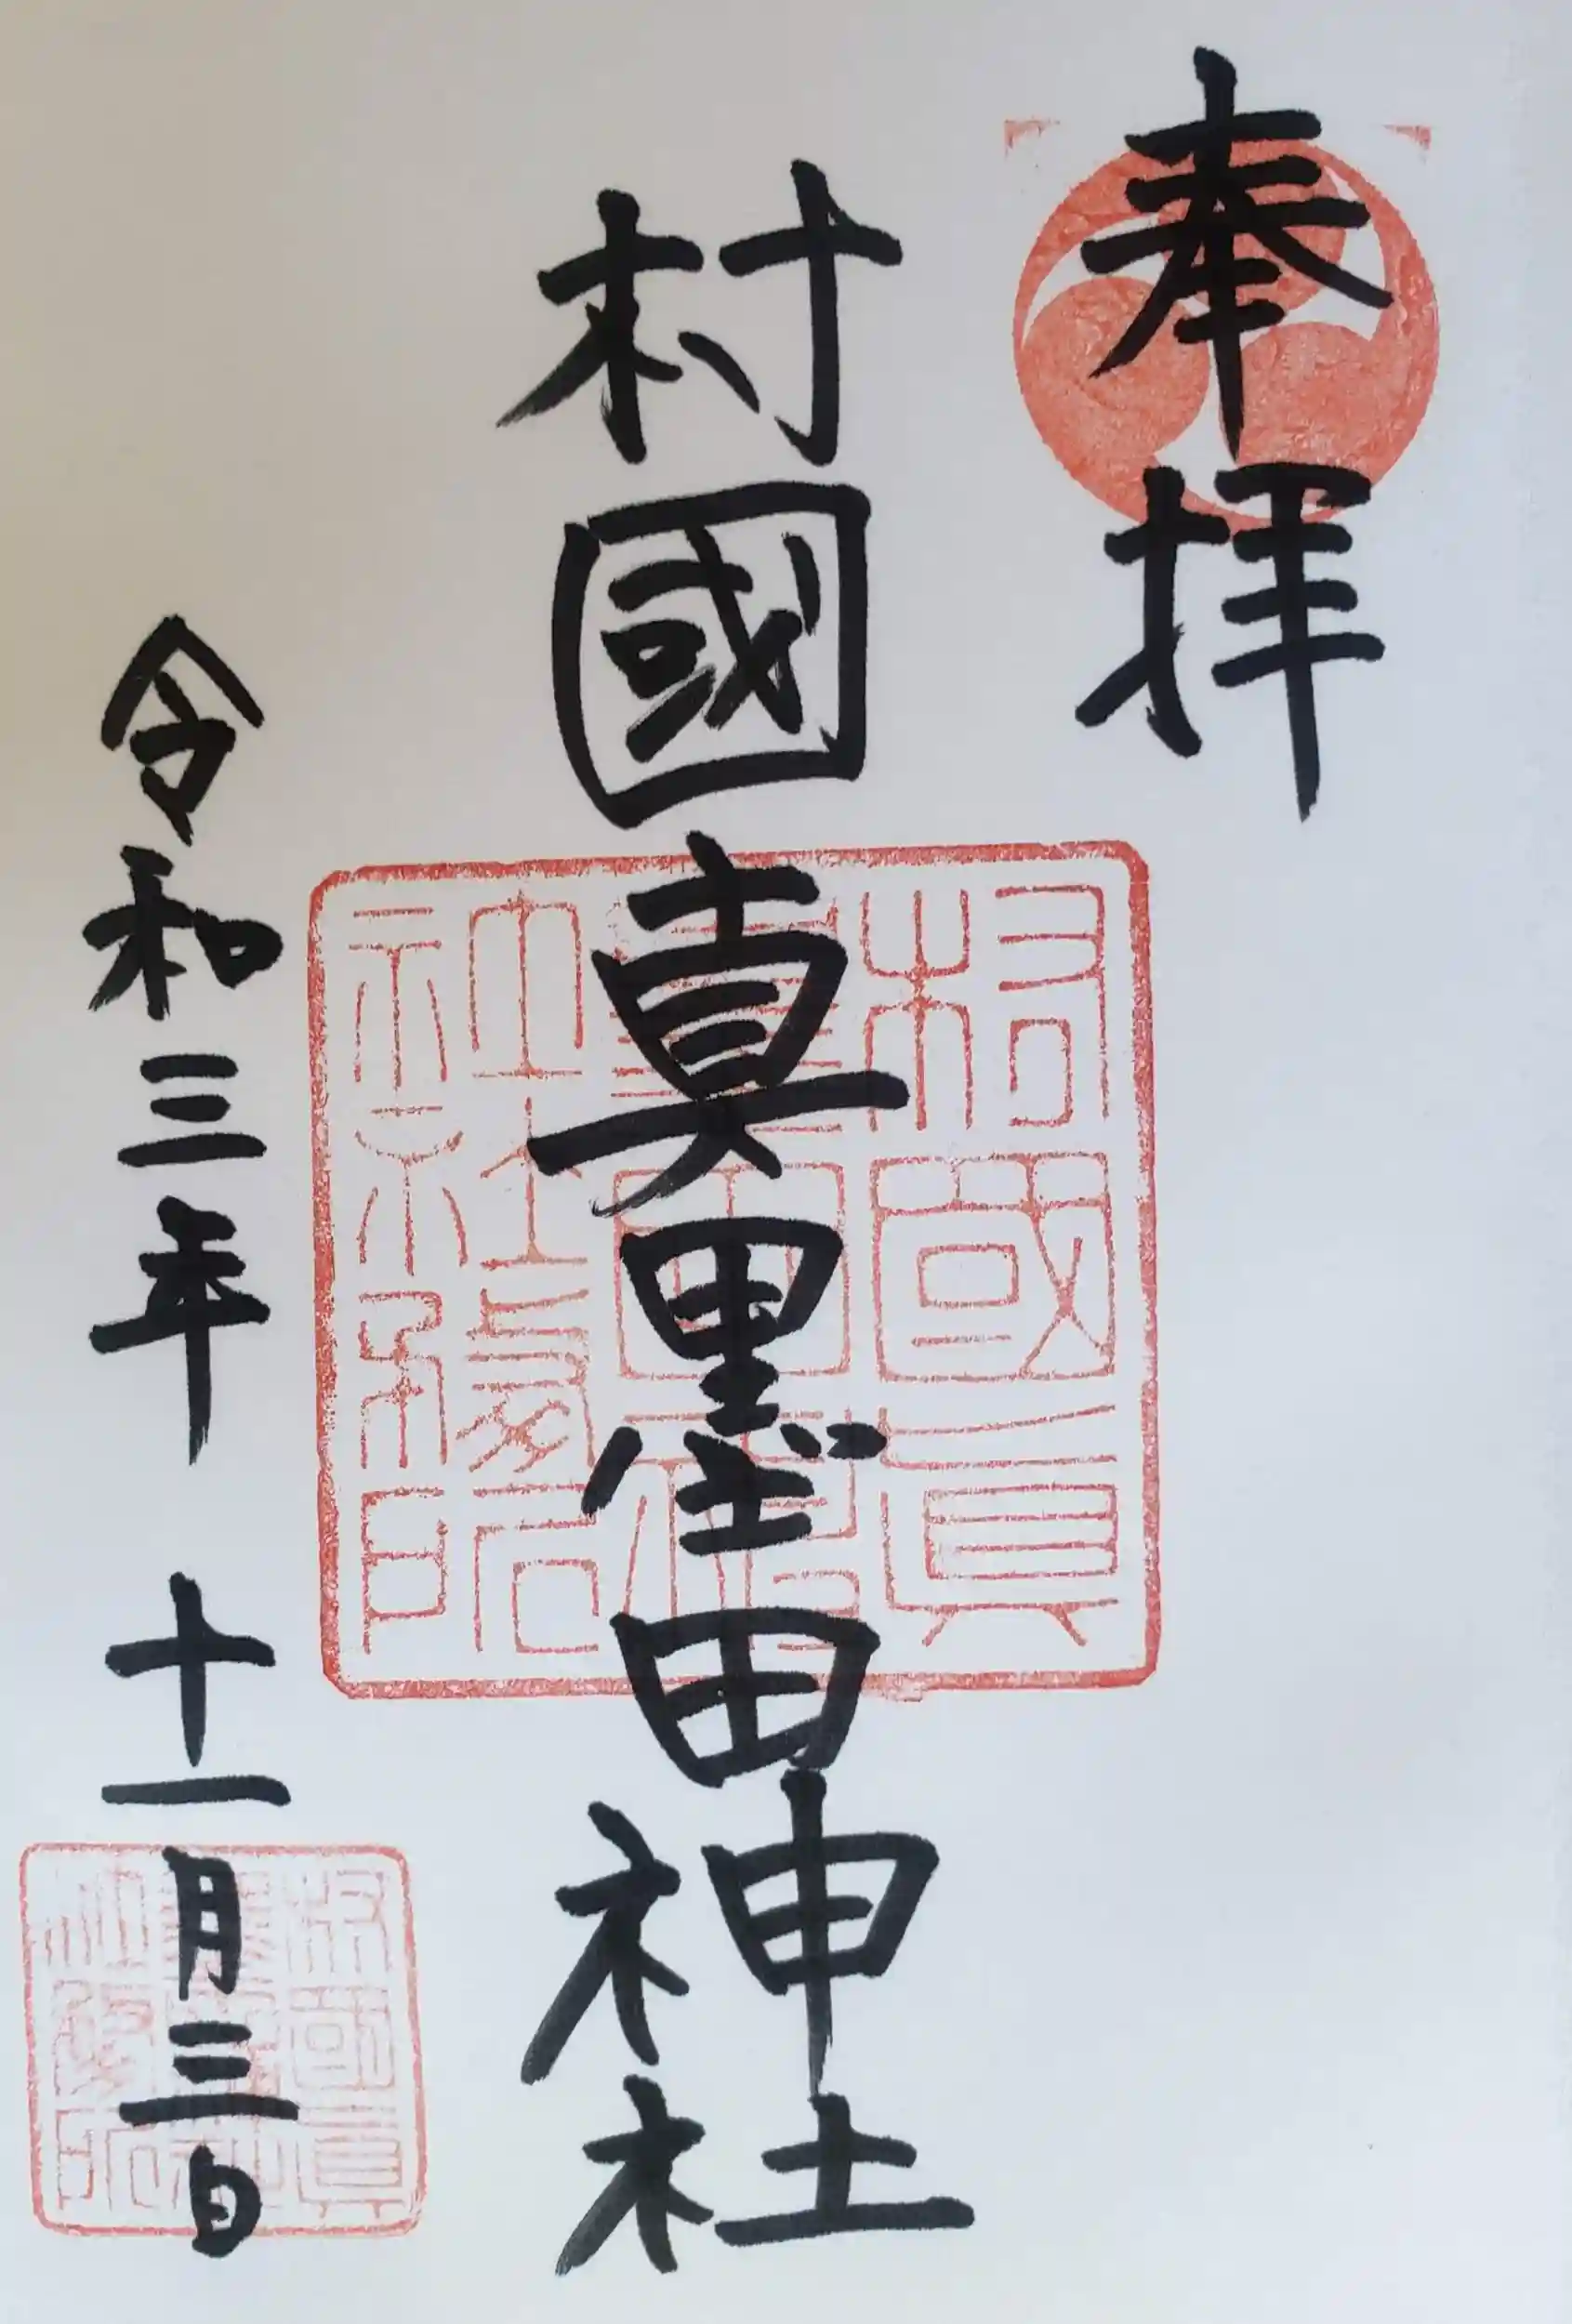 奉拝
村國真墨田神社
令和三年 十一月三日